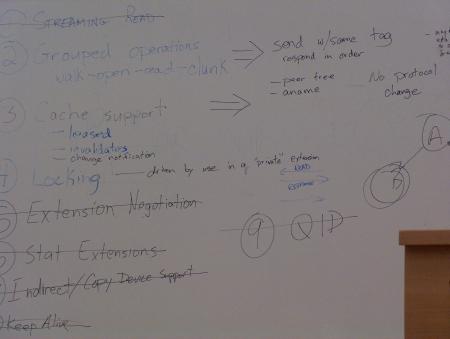 1 STREAMING READ
2 Grouped operations ⇒ send w/same tag
walk-open-read-clunk respond in order
3 Cache support ⇒ - peer tree No protocol
- aname change
- leased
- invalidations
- change notification
4 Locking — driven by use in a "private" extension
READ
RESPONSE
A
B
5 Extension Negotiation
9 QID
6 Stat Extensions
7 Indirect/Copy Device Support
Keep Alive